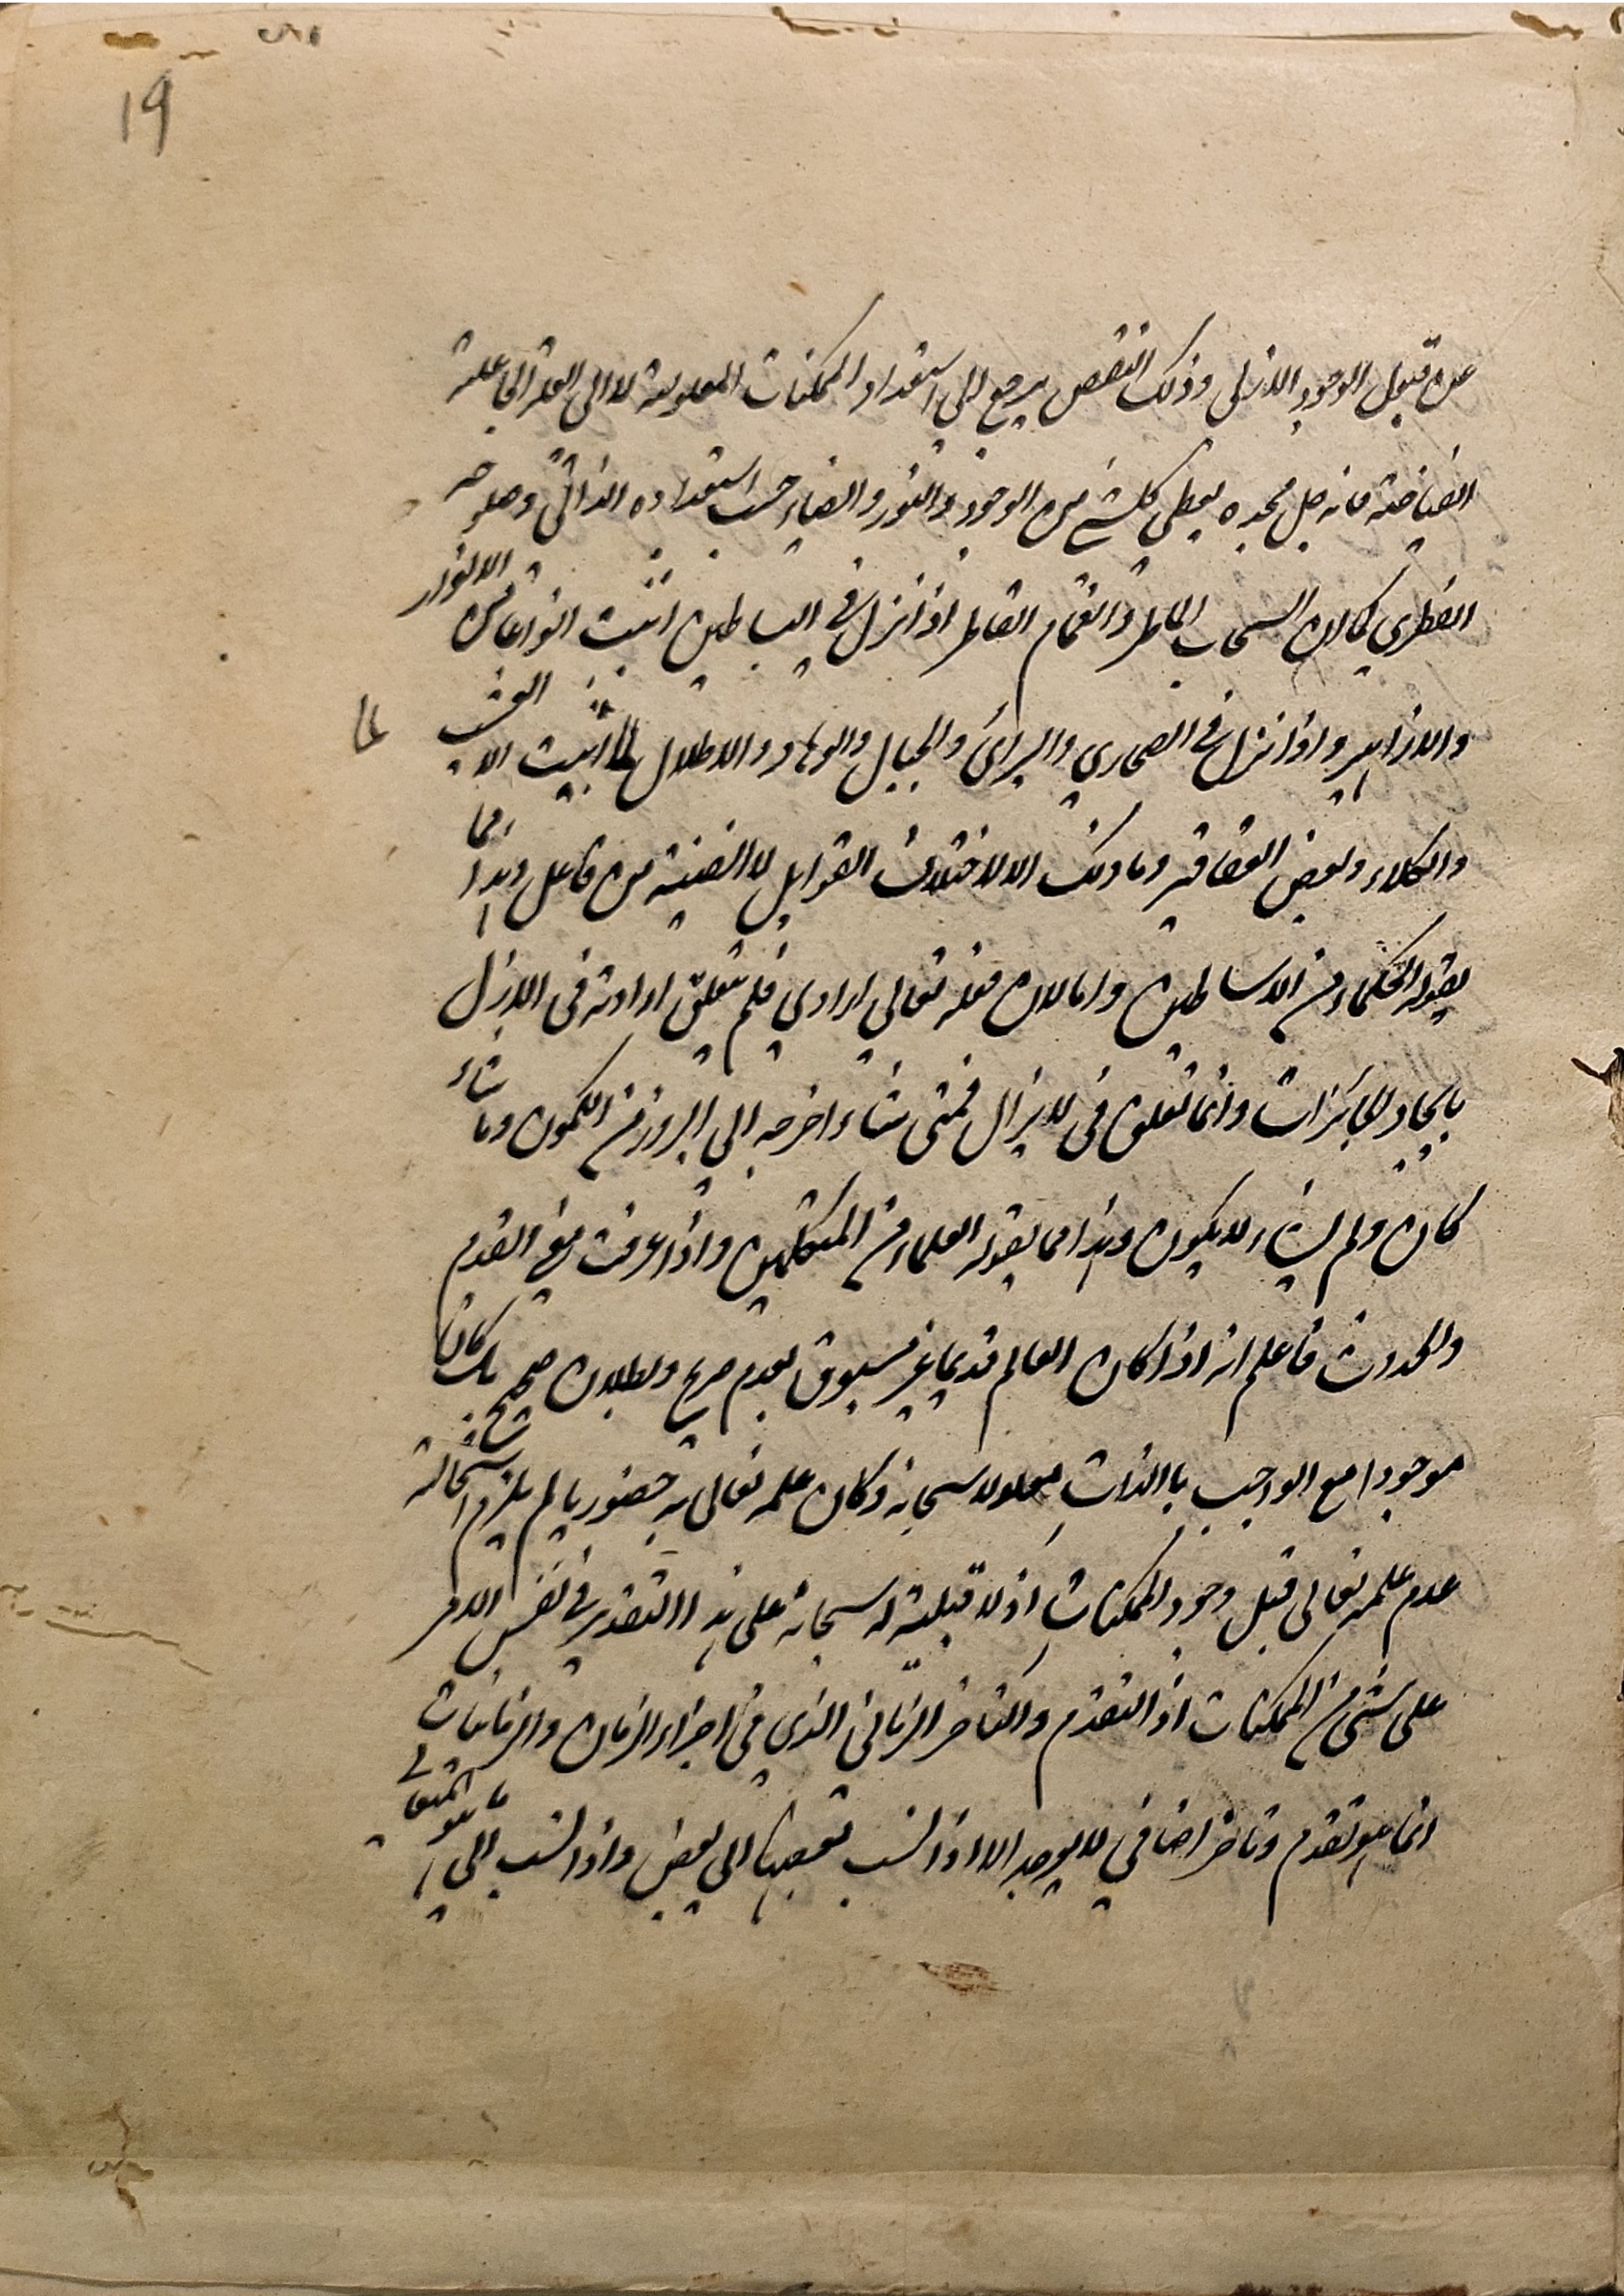 19
عن قبول الوجود الازلى وذلك النقص يرجع الى استعداد الممكنات المعلولية لا الى العلة الفاعلية
الفياضة فانه جل مجده يعطى كل شئ من الوجود والنور والضياء حسب استعداده الذاتى وصلوحه
الفطرى كما ان السحاب الماطر والغمام القاطر اذا نزل فى البساطين انبت انواعا من الانوار
والازاهير واذا نزل فى الصحارى والبرارى والجبال والوهاد والاطلال لما انبت الا العشب
لما
والكلاء وبعض العقاقير وما ذلك الا لاختلاف القوابل لا الضنية من فاعل وهذا مما
يقوله الحكماء من الاساطين واما لان فعله تعالى ارادى فلم يتعلق ارادته فى الازل
بايجاد الجائزات وانما تتعلق فى لا يزال فمتى شاء اخرجه الى البروز من الكمون وما شاء
كان ولم يشاء لا يكون وهذا مما يقوله العلماء من المتكلمين واذا عرفت معنى القدم
والحدوث فاعلم انه اذا كان العالم قديما غير مسبوق بعدم صريح وبطلان صحيح بل كان
موجودا مع الواجب باالذات معلولا سبحانه وكان علمه تعالى به حضوريا لم يلزم استحالة
عدم علمه تعالى قبل وجود الممكنات اذ لا قبلية له سبحانه على هذا التقدير فى نفس الامر
على شئ من الممكنات اذ التقدم والتاخر الزمانى الذى فى اجزاء الزمان والزمانيات
انما هو تقدم وتاخر اضافى لا يوجد الا اذا نسب بعضها الى بعض واذا نسب الى ما هو المتعالى